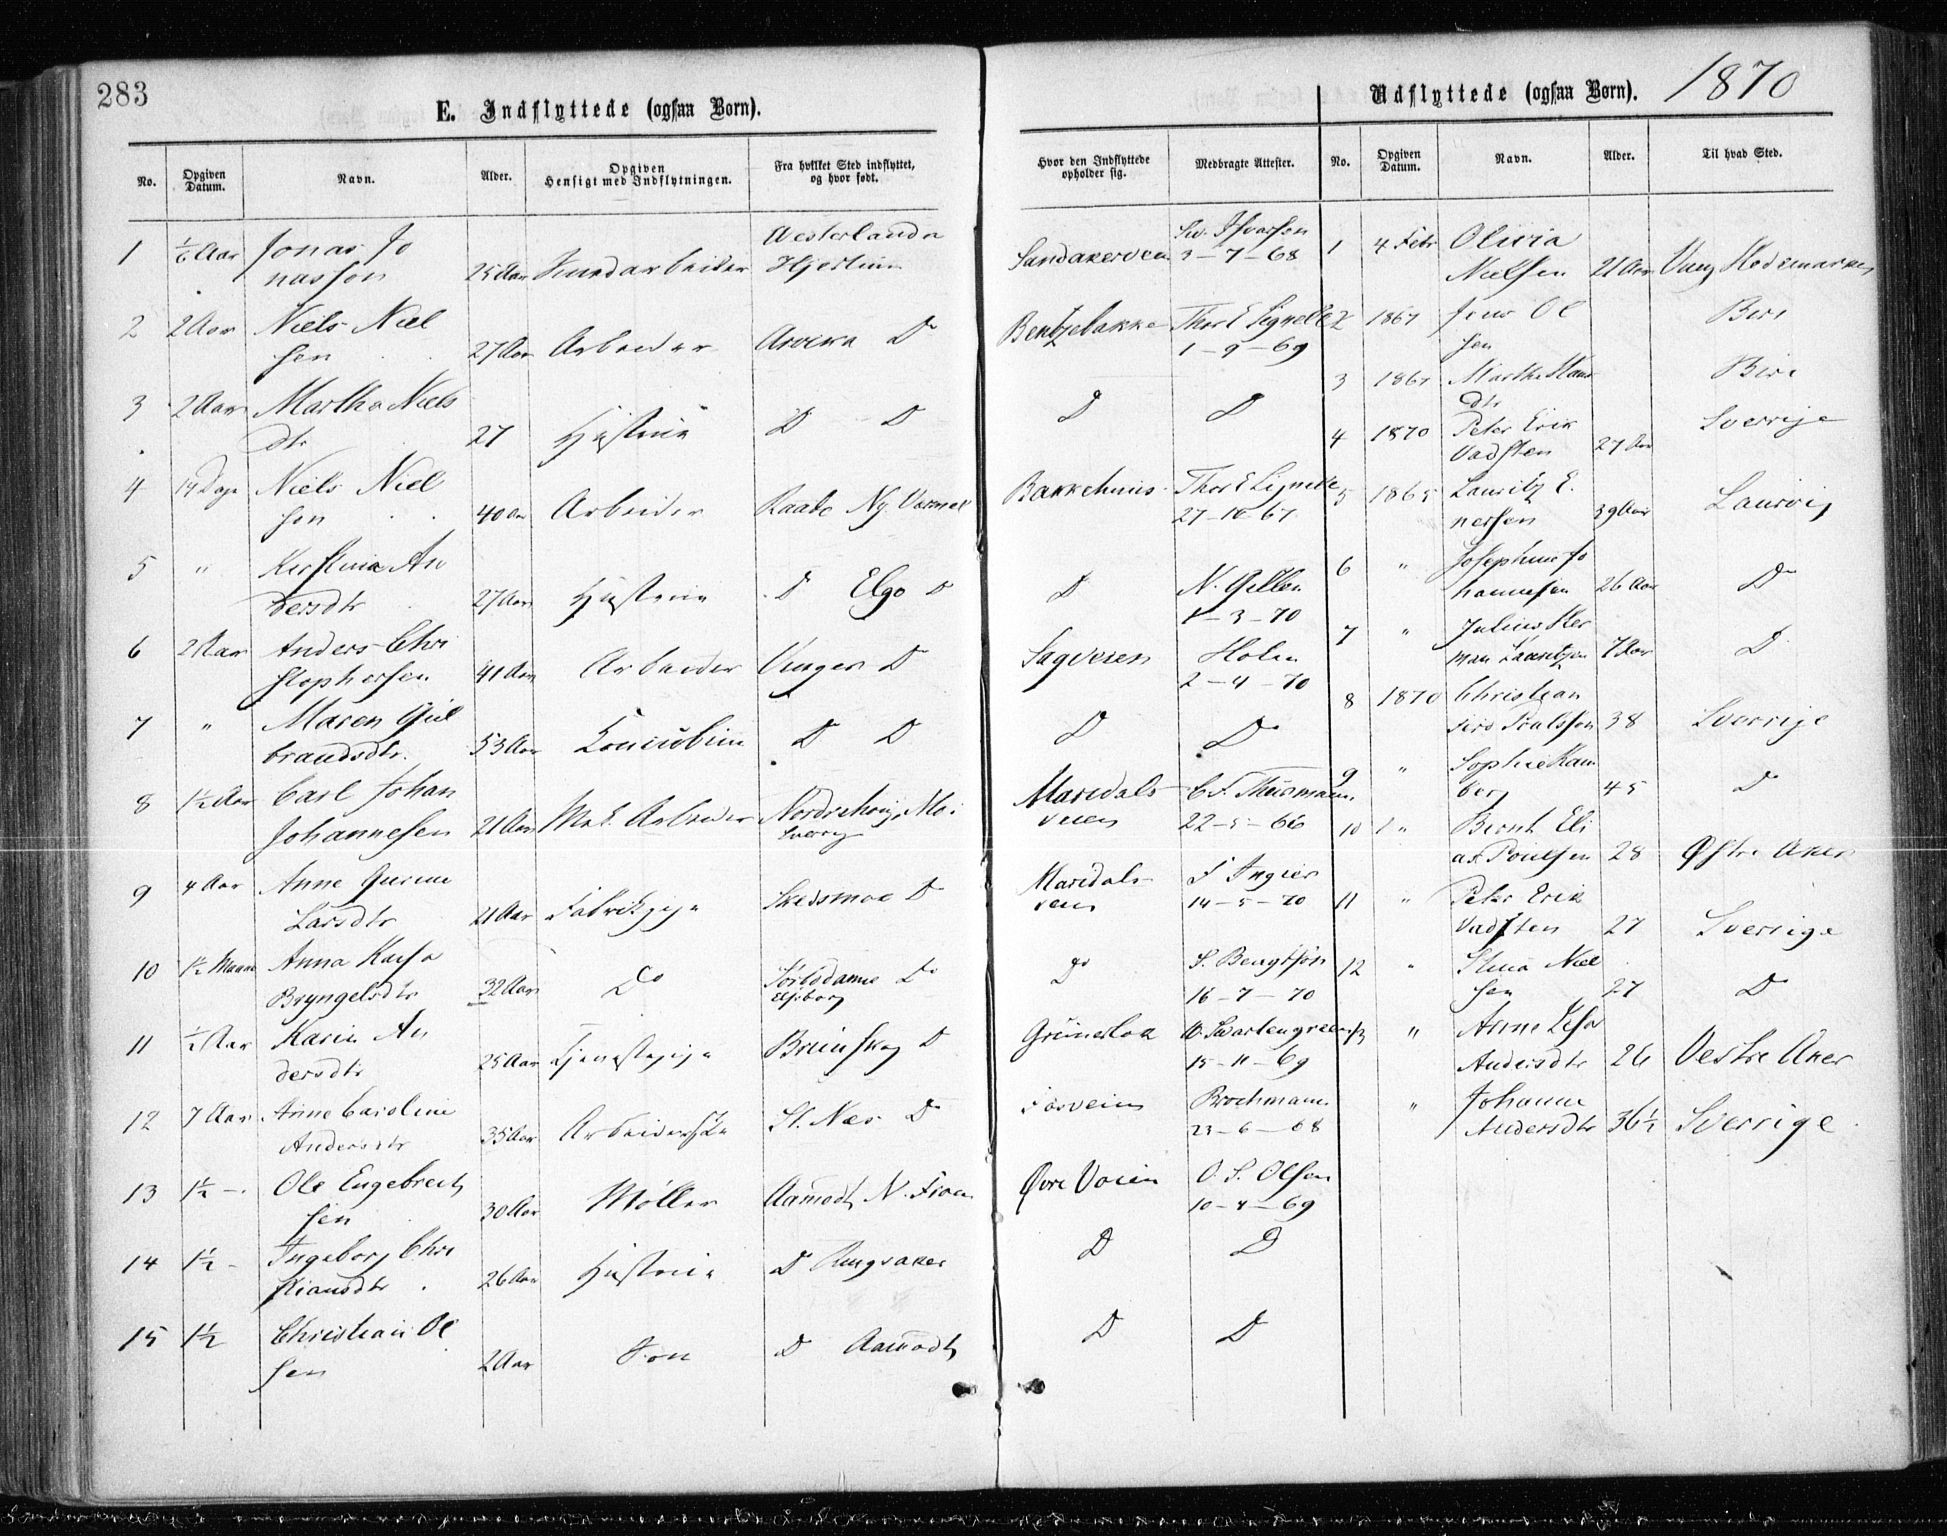 283
E. Indflyttede (ogsaa Børn).
No. Opgiven Datum. Navn. Alder. Opgiven Hensigt med Indflytningen. Fra hvilket Sted indflyttet, og hvor født. Hvor den Indflyttede opholder sig. Medbragte Attester.
1 Aar Jonas Jo
nasson 25 Aar Westerlanda
Sandakerveien 3-7-68
2 2 Aar Niels Niel
sen 27 Aar Arbeider Arvika Do
Bentzebakke Thor E
1-9-69
3 2 Aar Martha Niels
dtr 27 Hustrue D D
D D
4 14 Dage Niels Niel
sen 40 Aar Arbeider Ny
Bakkehuus Thor E
27-10-67
5 " Kerstina An
dersdtr 27 Aar Hustrue D Elgo D
D N.
1-3-70
6 2 Aar Anders Chri
stophersen 41 Aar Arbeider Vinger D
Sagveien Holm
2-4-70
7 " Maren Gul
brandsdtr. 53 Aar Concubine D D
D Do
8 1½ Aar Carl Johan
Johannesen 21 Aar M.E. Arbeider
Maridals
veien 22-5-66
9 4 Aar Anne Gurine
Larsdtr 21 Aar Fabrikpige Skedsmoe Do
Maridals
veien 14-5-70
10 1½ Anna Kajsa
Bryngelsdtr 32 Aar Do Do
Elfsborg
Do S. Bengtson
16-7-70
11 ½ Aar Karin An
dersdtr 25 Aar Tjenestepige Brunskog D
15-11-69
12 7 Aar Anne Caroline
Andersdtr 35 Aar St. Næs Do
Brochmann
23-6-68
13 1½ - Ole Engebrets
sen 30 Aar Møller Aamodt N.
Øvre Voien O. S. Olsen
10-4-69
14 1½ - Ingeborg Chri
stiansdtr 26 Aar Hustrue D Ringsaker
D D
15 1½ Christian Ol
sen 2 Aar Søn D Aamodt
D D
Udflyttede (ogsaa Børn). 1870
No. Opgiven Datum. Navn. Alder. Til hvad Sted.
1 4 Febr Olivia
Nielsen 21 Aar Vang Hedemarken
2 1867 Jens Ol
sen Biri
3 1867 Marthe Hans
dtr Biri
4 1870 Peter Erik
Vadsten 27 Aar Sverrige
5 1865 Lauritz E.
nersen 39 Aar Laurvig
6 " Josephine Jo
hannesen 26 Aar Do
7 " Julius Her
man Lauritzen 7 Aar D
8 1870 Christian
38 Sverrige
9 " Sophie Ram
berg 45 D
10 " Bernt Eli
as Poulsen 28 Østre Aker
11 " Peter Erik
Vadsten 27 Sverrige
12 " Stina Niel
sen 27 Do
13 " Anne Lisa
Andersdtr 26 Vestre Aker
" Johanne
Andersdtr 36½ Sverrige